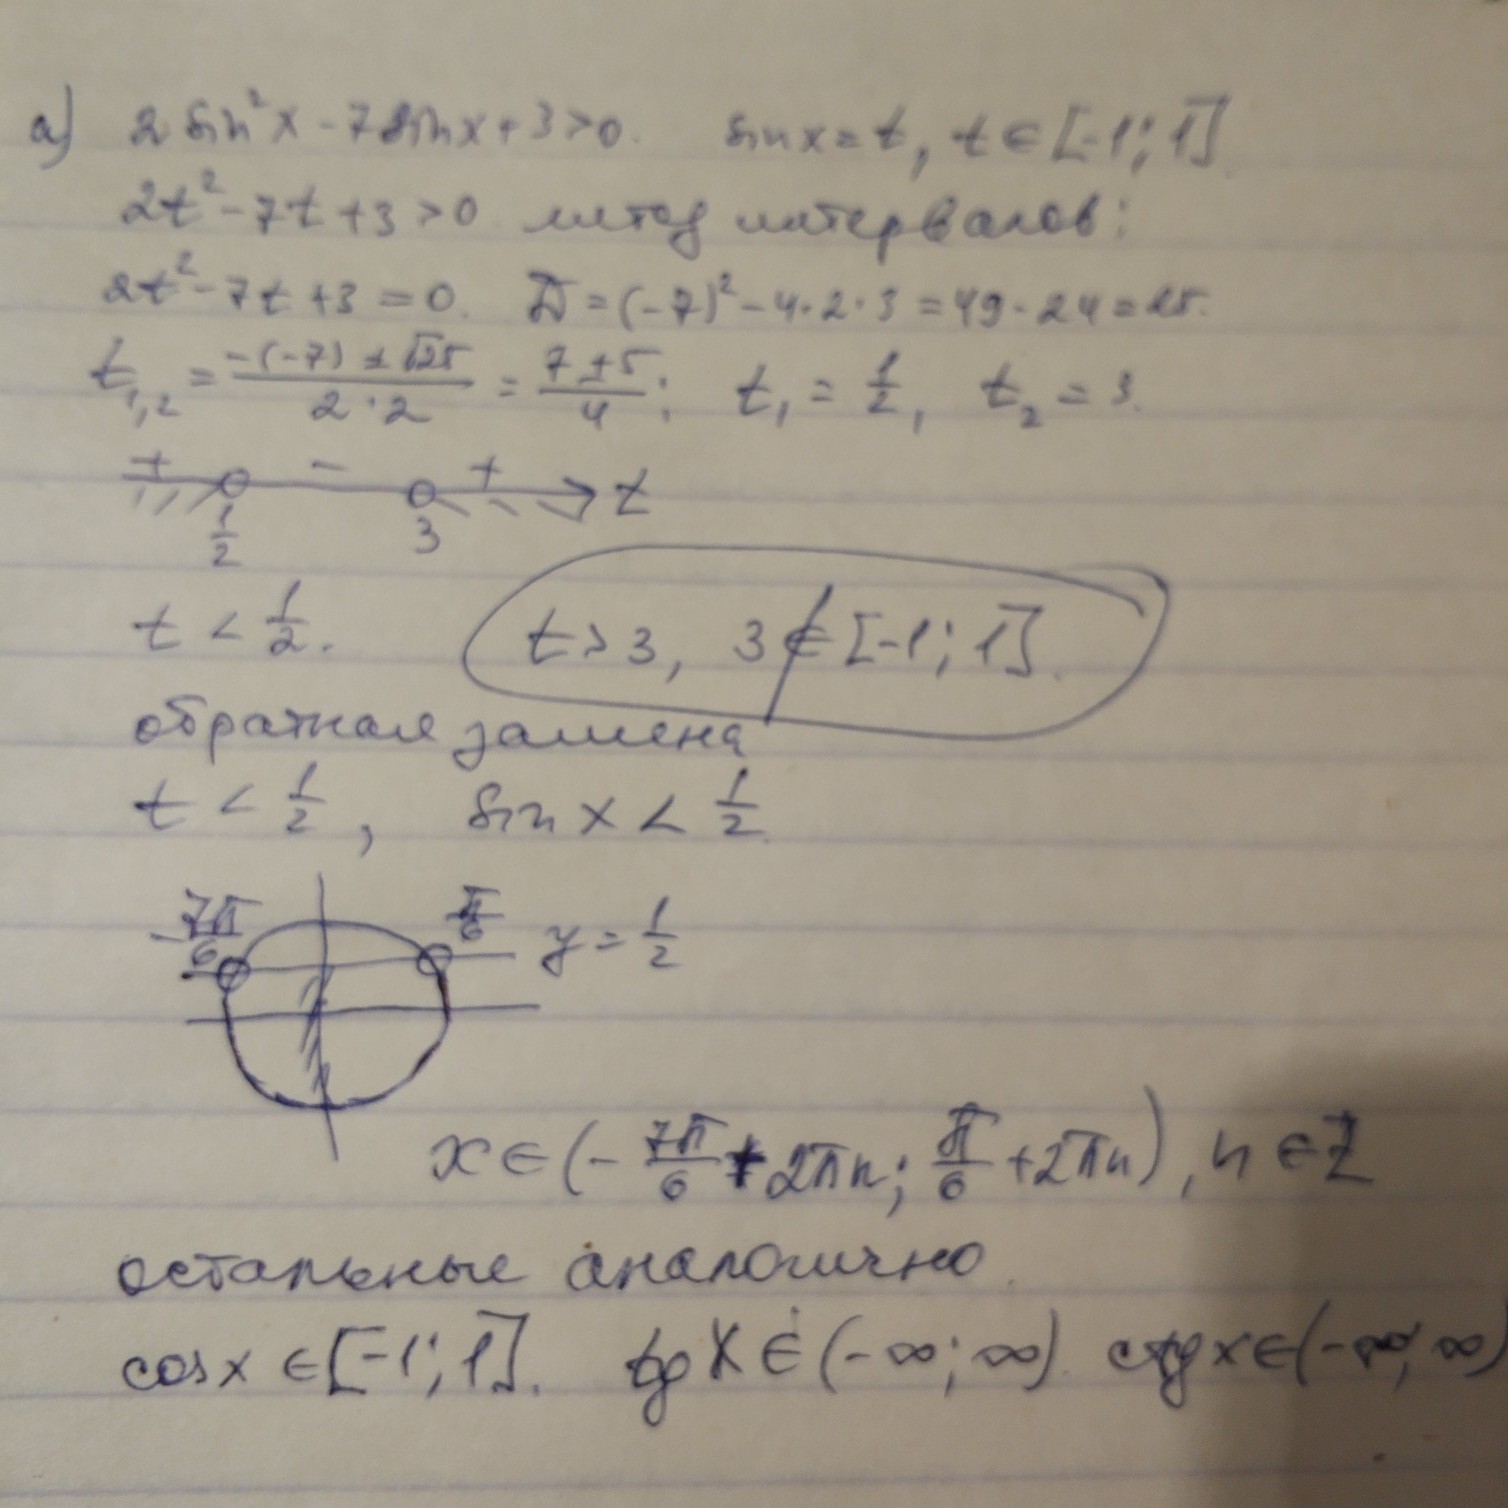 а) 2 sin²x - 7 sin x + 3 > 0. sin x = t, t ∈ [-1; 1].
2t² - 7t + 3 > 0 метод интервалов:
2t² - 7t + 3 = 0. D = (-7)² - 4·2·3 = 49 - 24 = 25.
t₁,₂ = (-(-7) ± √25)/(2·2) = (7 ± 5)/4; t₁ = 1/2, t₂ = 3.
+ - + t
1/2 3
t < 1/2. t > 3, 3 ∉ [-1; 1].
обратная замена
t < 1/2, sin x < 1/2.
-7π/6 π/6 y = 1/2
x ∈ (-7π/6 + 2πn; π/6 + 2πn), n ∈ Z
остальные аналогично.
cos x ∈ [-1; 1]. tg x ∈ (-∞; ∞). ctg x ∈ (-∞; ∞)